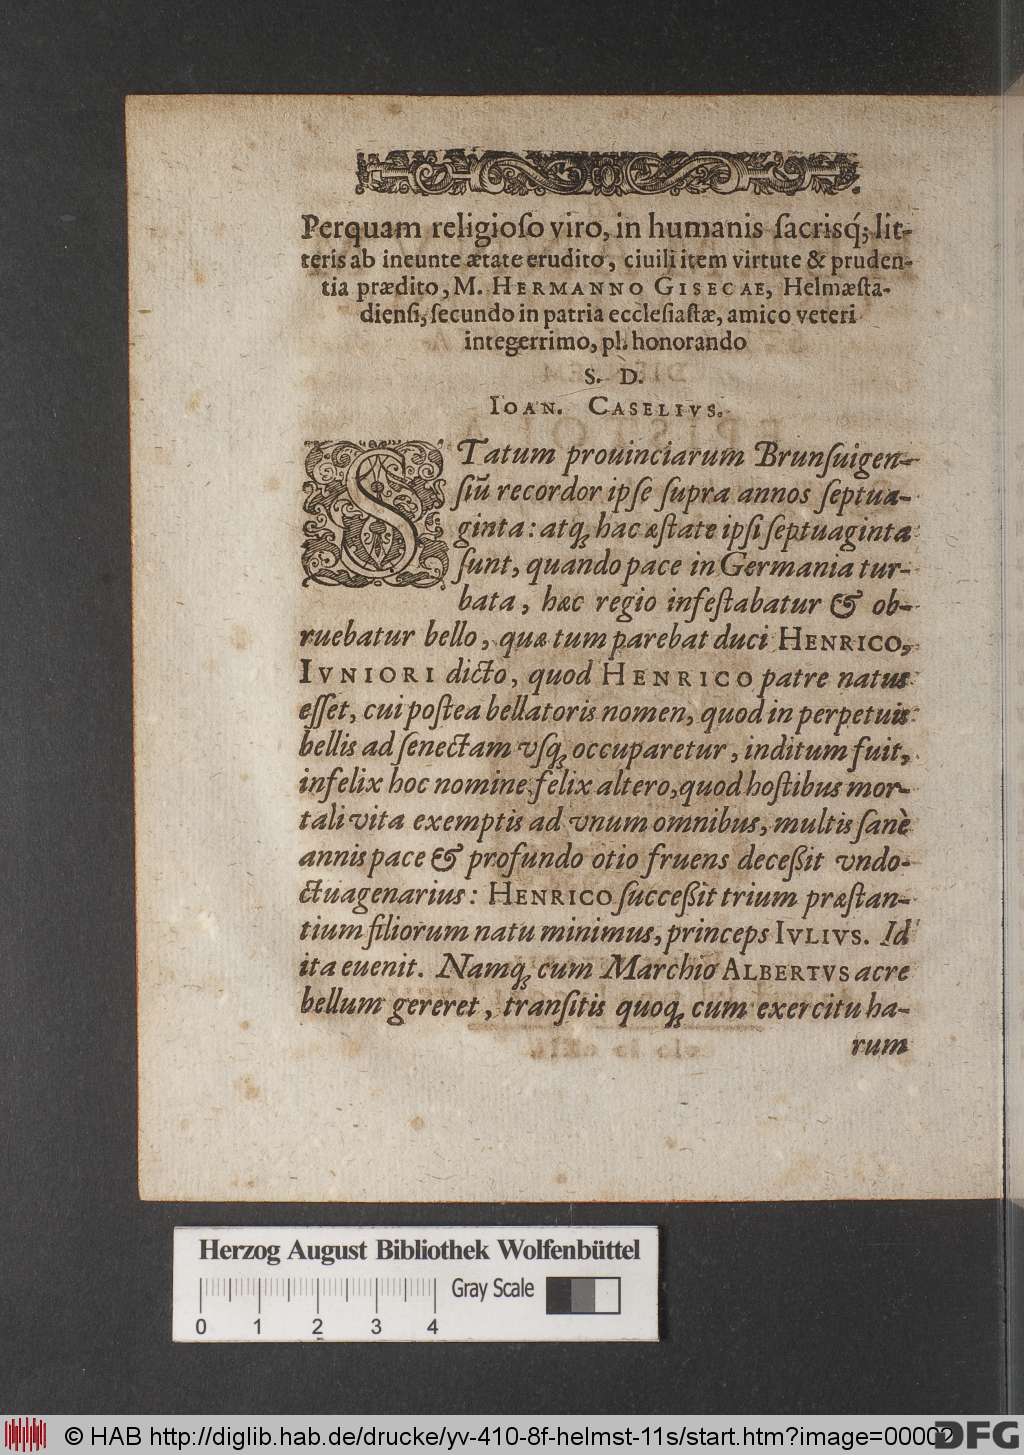 Perquam religioſo viro, in humanis ſacrisq́; lit-
teris ab ineunte ætate erudito, ciuili item virtute & pruden-
tia prædito, M. HERMANNO GISECAE, Helmæſta-
dienſi, ſecundo in patria eccleſiaſtæ, amico veteri
integerrimo, pl. honorando
S. D.
IOAN. CASELIVS.
STatum prouinciarum Brunſuigen-
ſiū recordor ipſe ſupra annos ſeptua-
ginta: atq; hac æſtate ipſi ſeptuaginta
ſunt, quando pace in Germania tur-
bata, hæc regio infeſtabatur & ob-
ruebatur bello, quæ tum parebat duci HENRICO,
IVNIORI dicto, quod HENRICO patre natus
eſſet, cui poſtea bellatoris nomen, quod in perpetuis
bellis ad ſenectam vſq; occuparetur, inditum fuit,
infelix hoc nomine, felix altero, quod hoſtibus mor-
tali vita exemptis ad vnum omnibus, multis ſanè
annis pace & profundo otio fruens deceßit vndo-
ctuagenarius: HENRICO ſucceßit trium præſtan-
tium filiorum natu minimus, princeps IVLIVS. Id
ita euenit. Namq; cum Marchio ALBERTVS acre
bellum gereret, tranſitis quoq; cum exercitu ha-
rum
Herzog August Bibliothek Wolfenbüttel
Gray Scale
0 1 2 3 4
© HAB http://diglib.hab.de/drucke/yv-410-8f-helmst-11s/start.htm?image=00002
DFG